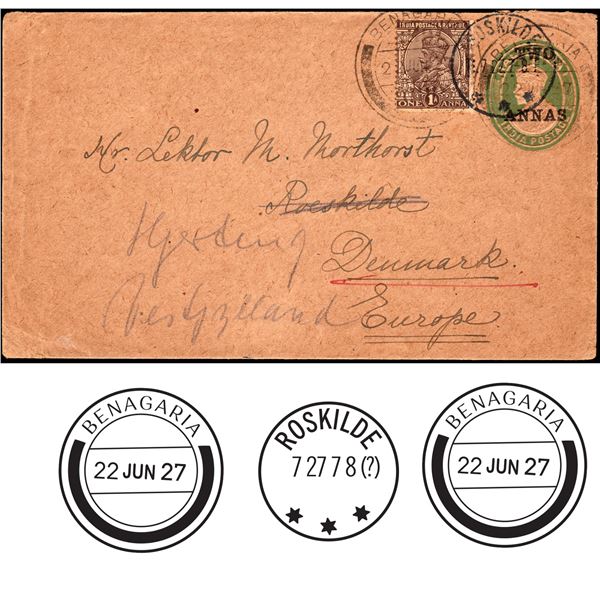 BENAGARIA
INDIA POSTAGE & REVENUE
ONE 1A ANNA
ROSKILDE
TWO
ANNAS
INDIA POSTAGE
Hr. Lektor M. Morthorst
Roeskilde
Hjerting
Denmark.
Vestjylland
Europe.
BENAGARIA
22 JUN 27
ROSKILDE
7 27 7 8 (?)
BENAGARIA
22 JUN 27